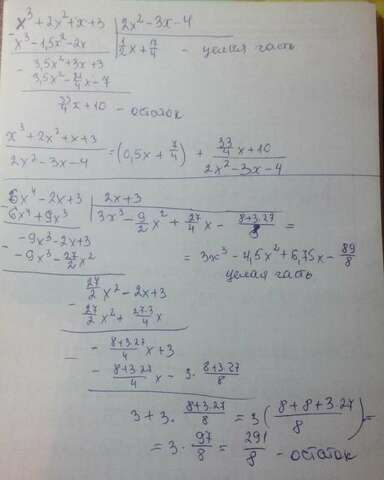 x³+2x²+x+3 | 2x²-3x-4
x³-1,5x²-2x | 1/2x+7/4 - целая часть
- 3,5x²+3x+3
3,5x²-21/4x-7
33/4x+10 - остаток
x³+2x²+x+3 / 2x²-3x-4 = (0,5x+7/4) + 33/4x+10 / 2x²-3x-4
6x⁴-2x+3 | 2x+3
6x⁴+9x³ | 3x³-9/2x²+27/4x-8+3·27/8 =
- -9x³-2x+3
-9x³-27/2x² = 3x³-4,5x²+6,75x-89/8
целая часть
- 27/2x²-2x+3
27/2x²+27·3/4x
- -8+3·27/4x+3
-8+3·27/4x-3·8+3·27/8
3+3·8+3·27/8=3(8+8+3·27/8)=
=3·97/8=291/8 - остаток